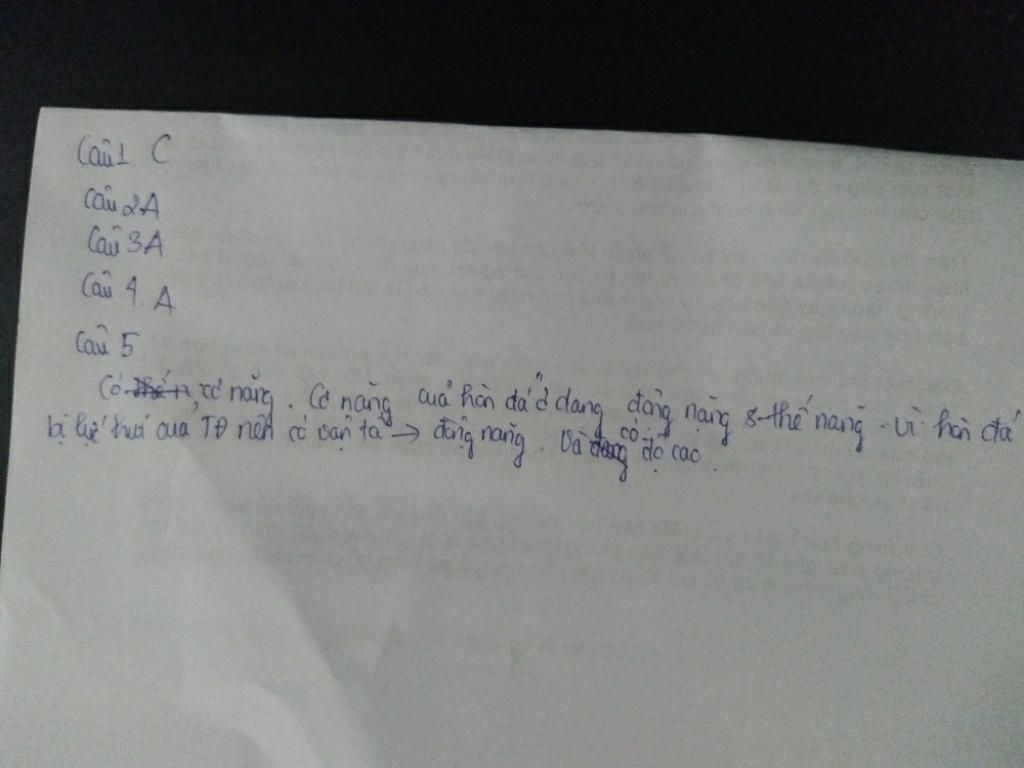 Câu 1 C
Câu 2 A
Câu 3 A
Câu 4. A
Câu 5
Có cơ năng. Cơ năng của hòn đá ở dạng động năng & thế năng. Vì hòn đá
bị lực hút của TĐ nên có vận tố → động năng. Và có độ cao.